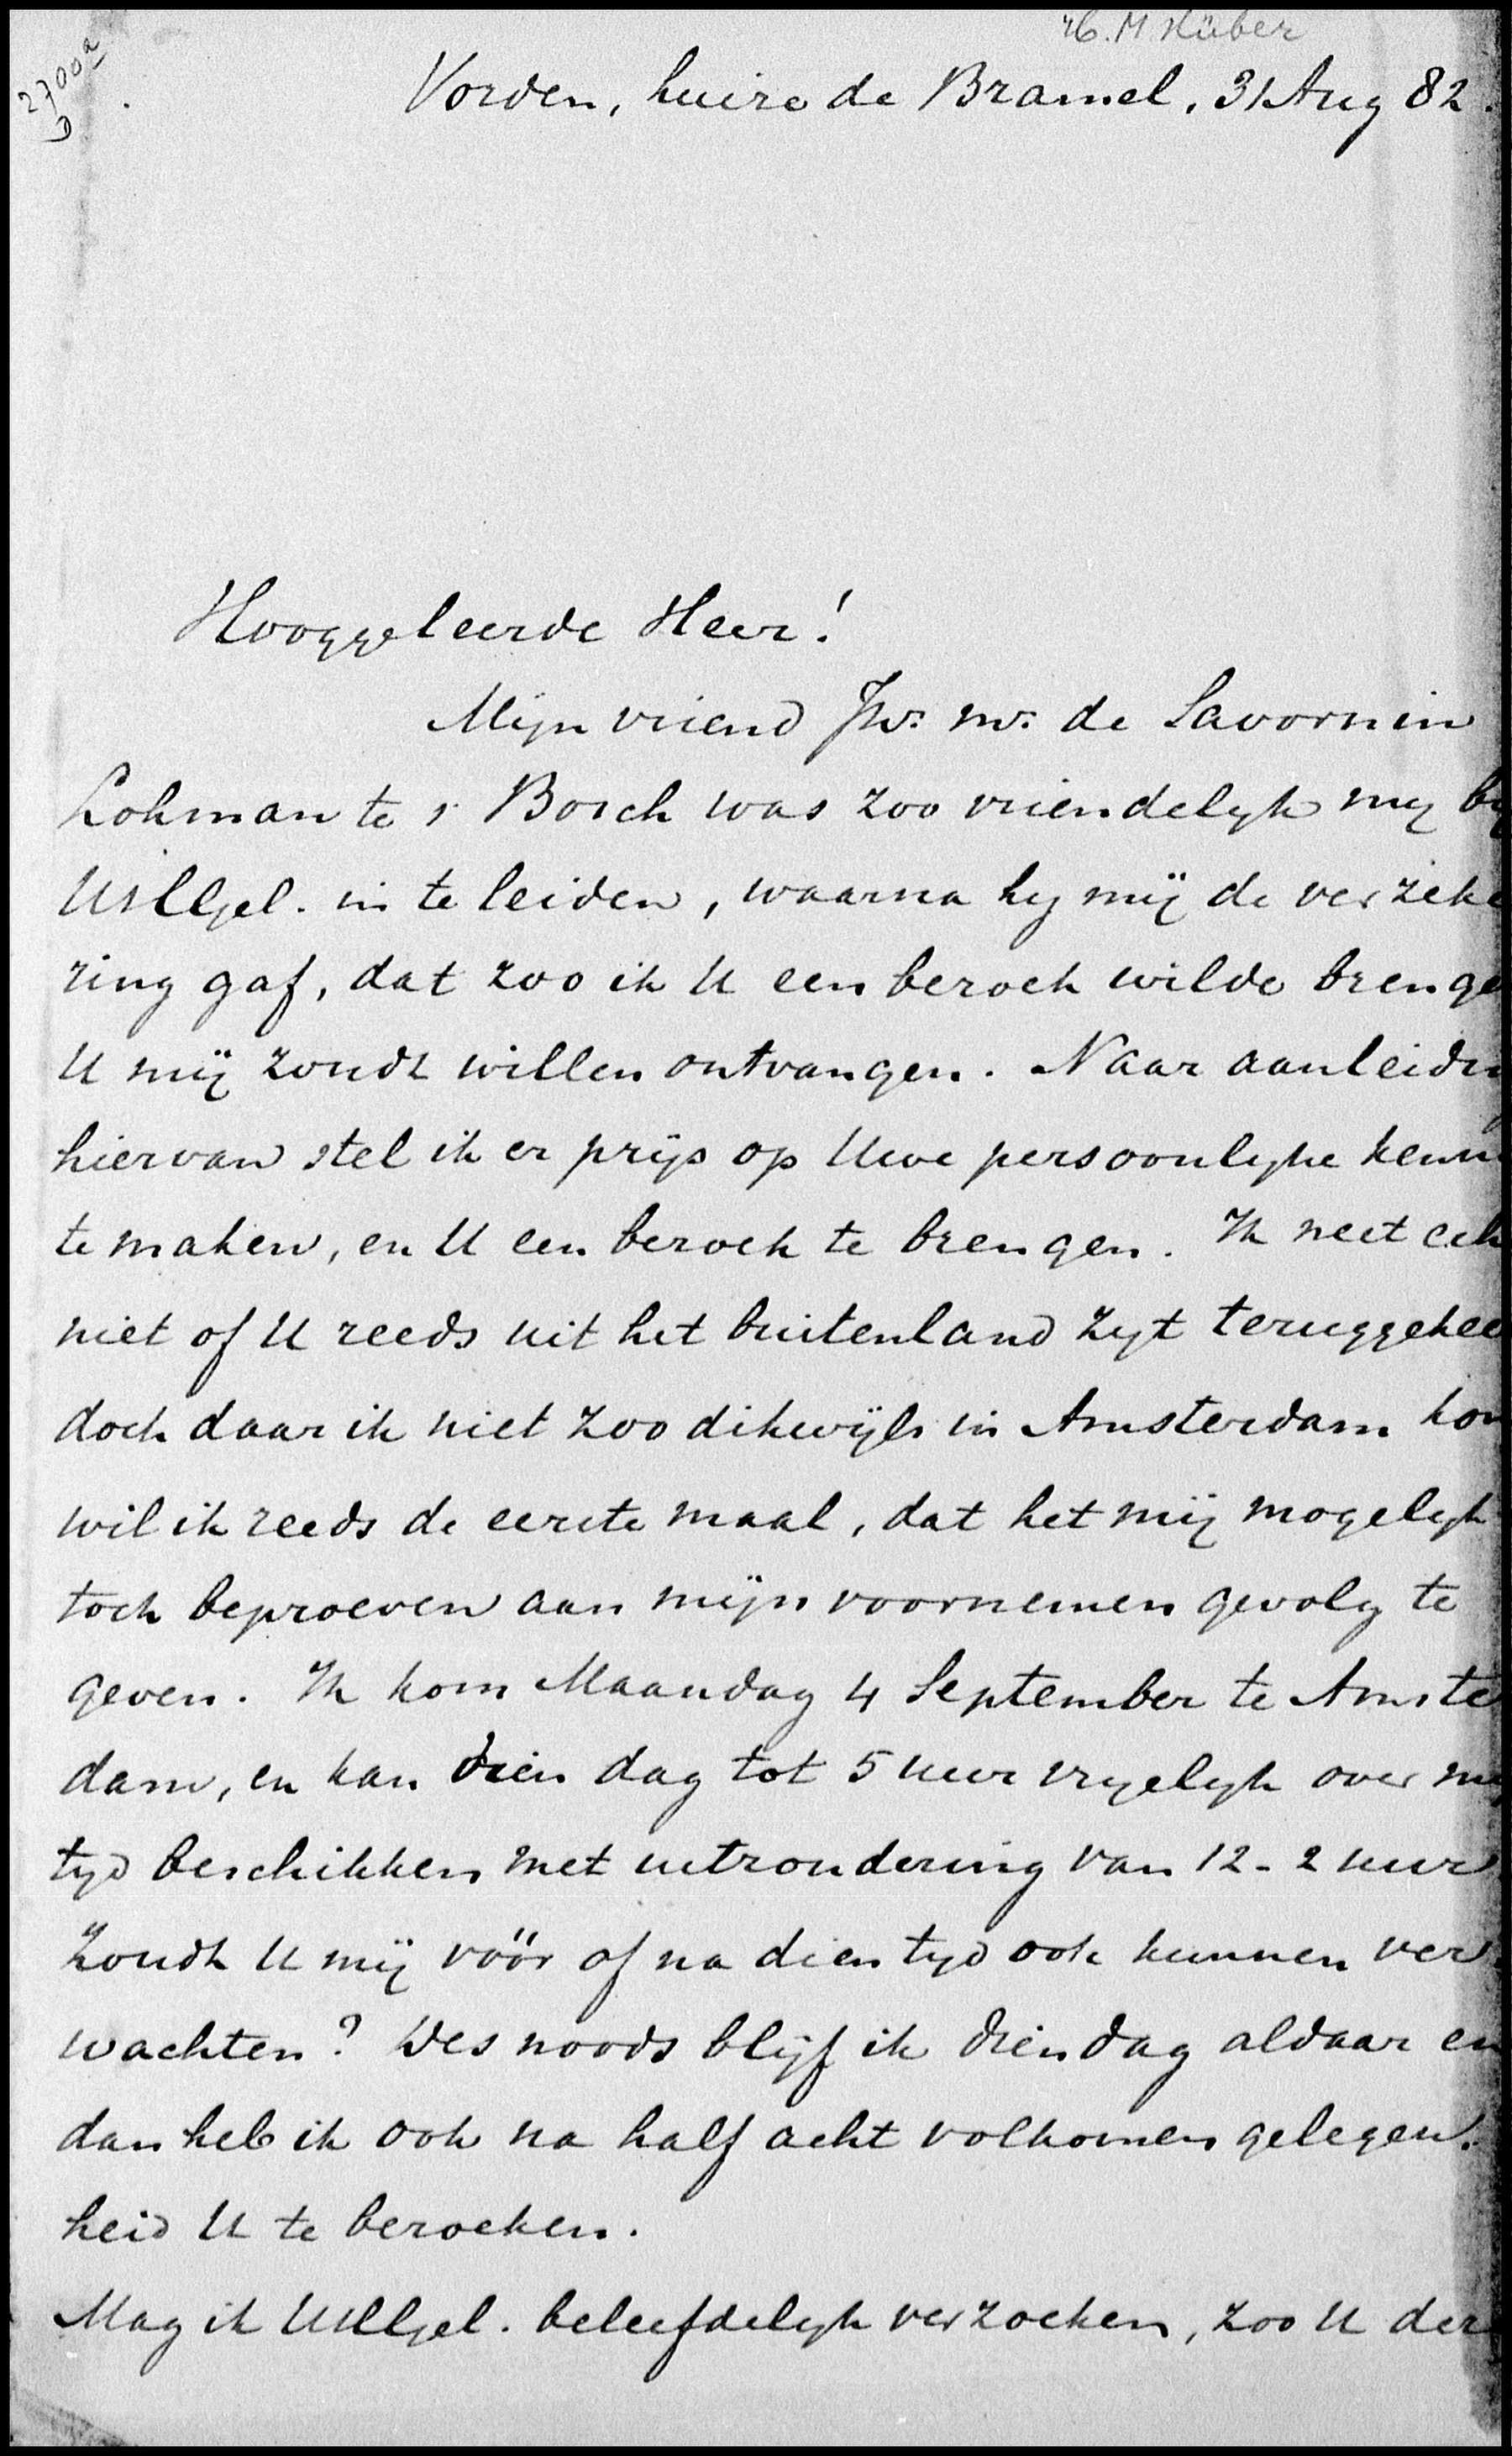 H. M. Hüber
2700a
Vorden, huize de Bramel, 31 Aug 82.
Hooggeleerde Heer!
Mijn vriend Jhr. mr. de Savornin
Lohman te s Bosch was zoo vriendelyk my by
UHGel. in te leiden, waarna hy mij de verzeke
ring gaf, dat zoo ik U een bezoek wilde brenge
U mij zoudt willen ontvangen. Naar aanleidin
hiervan stel ik er prijs op Uwe persoonlyke kenn
te maken, en U een bezoek te brengen. Ik weet ech
niet of U reeds uit het buitenland zyt teruggekee
doch daar ik niet zoo dikwijls in Amsterdam kom
wil ik reeds de eerste maal, dat het mij mogelyk
toch beproeven aan mijn voornemen gevolg te
geven. Ik kom Maandag 4 September te Amste
dam, en kan dien dag tot 5 uur vryelyk over my
tyd beschikken met uitzondering van 12-2 uur
Zoudt U mij vóór of na dien tyd ook kunnen ver
wachten? Des noods blijf ik dien dag aldaar en
dan heb ik ook na half acht volkomen gelegen.
heid U te bezoeken.
Mag ik UHGel. beleefdelyk verzoeken, zoo U der